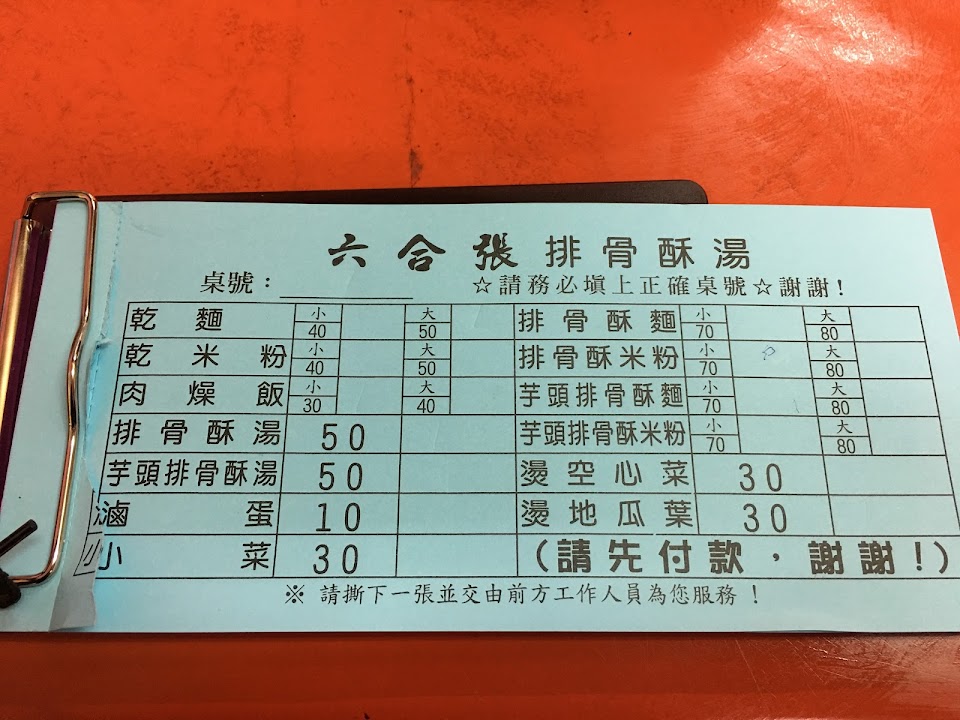 六合張排骨酥湯
桌號：＿＿＿＿ ☆請務必填上正確桌號☆謝謝！
乾麵 小 40 大 50 排骨酥麵 小 70 大 80
乾米粉 小 40 大 50 排骨酥米粉 小 70 大 80
肉燥飯 小 30 大 40 芋頭排骨酥麵 小 70 大 80
排骨酥湯 50 芋頭排骨酥米粉 小 70 大 80
芋頭排骨酥湯 50 燙空心菜 30
滷蛋 10 燙地瓜葉 30
小菜 30 (請先付款，謝謝！)
※ 請撕下一張並交由前方工作人員為您服務！